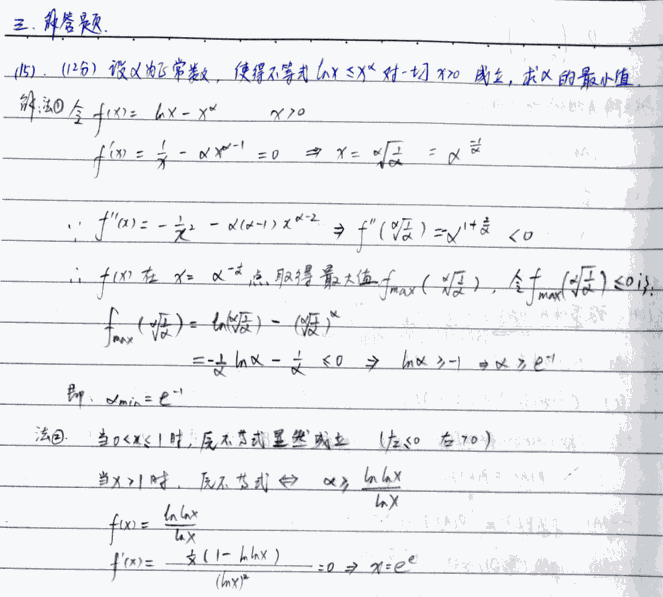 三. 解答题.
(15). (12分) 设α为正常数, 使得不等式 lnx ≤ x^α 对一切 x>0 成立, 求α的最小值.
解: 法① 令 f(x) = lnx - x^α  x>0
f'(x) = 1/x - αx^(α-1) = 0 ⇒ x = ^α√(1/α) = α^(-1/α)
∵ f''(x) = -1/x² - α(α-1)x^(α-2) ⇒ f''(^α√(1/α)) = α^(1+2/α) < 0
∴ f(x) 在 x = α^(-1/α) 点取得最大值 f_max(^α√(1/α)), 令 f_max(^α√(1/α)) ≤ 0
f_max(^α√(1/α)) = ln(^α√(1/α)) - (^α√(1/α))^α
= -1/α lnα - 1/α ≤ 0 ⇒ lnα ≥ -1 ⇒ α ≥ e^(-1)
即. α_min = e^(-1)
法②. 当 0<x≤1 时, 原不等式显然成立 (左≤0 右>0)
当 x>1 时, 原不等式 ⇔ α ≥ lnlnx/lnx
f(x) = lnlnx/lnx
f'(x) = 1/x(1-lnlnx)/(lnx)² = 0 ⇒ x = e^e